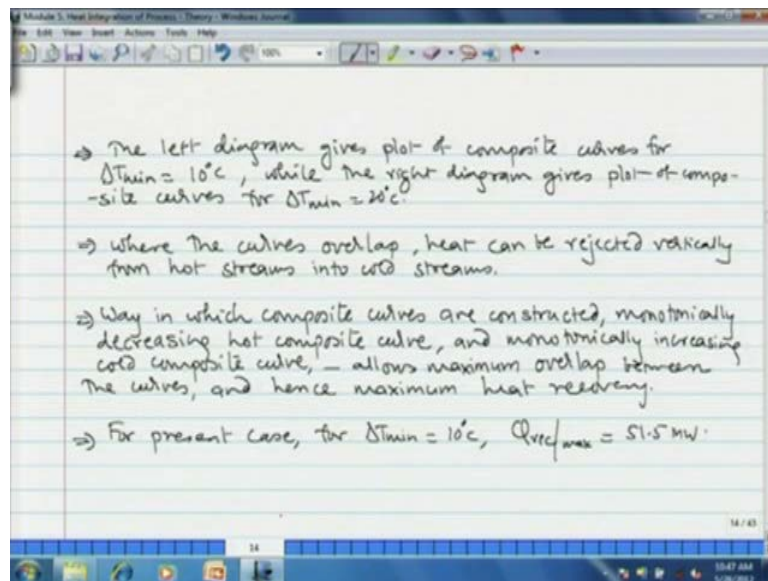 Module 5. Heat Integration of Process - Theory - Windows Journal
File Edit View Insert Actions Tools Help
100%
⇒ The left diagram gives plot of composite curves for
ΔTmin = 10°C, while the right diagram gives plot of compo-
-site curves for ΔTmin = 20°C.
⇒ Where the curves overlap, heat can be rejected vertically
from hot streams into cold streams.
⇒ Way in which composite curves are constructed, monotonically
decreasing hot composite curve, and monotonically increasing
cold composite curve, — allows maximum overlap between
the curves, and hence maximum heat recovery.
⇒ For present case, for ΔTmin = 10°C, Qrec/max = 51.5 MW.
14 / 43
14
10:47 AM